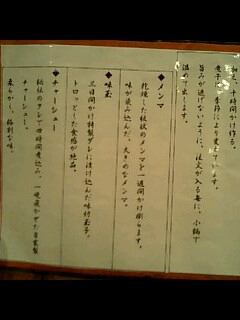 煮干は季節により変えています。
旨みが逃げないように、注文が入る毎に、小鍋で
温めて出します。
◆メンマ
乾燥した板状のメンマを一週間かけ膨らます。
味が染み込んだ、大きめなメンマ。
◆味玉
三日間かけ特製ダレに漬け込んだ味付玉子。
トロッとした食感が絶品。
◆チャーシュー
秘伝のタレで四時間煮込み、一晩寝かせた自家製
チャーシュー。
柔らかく、格別な味。